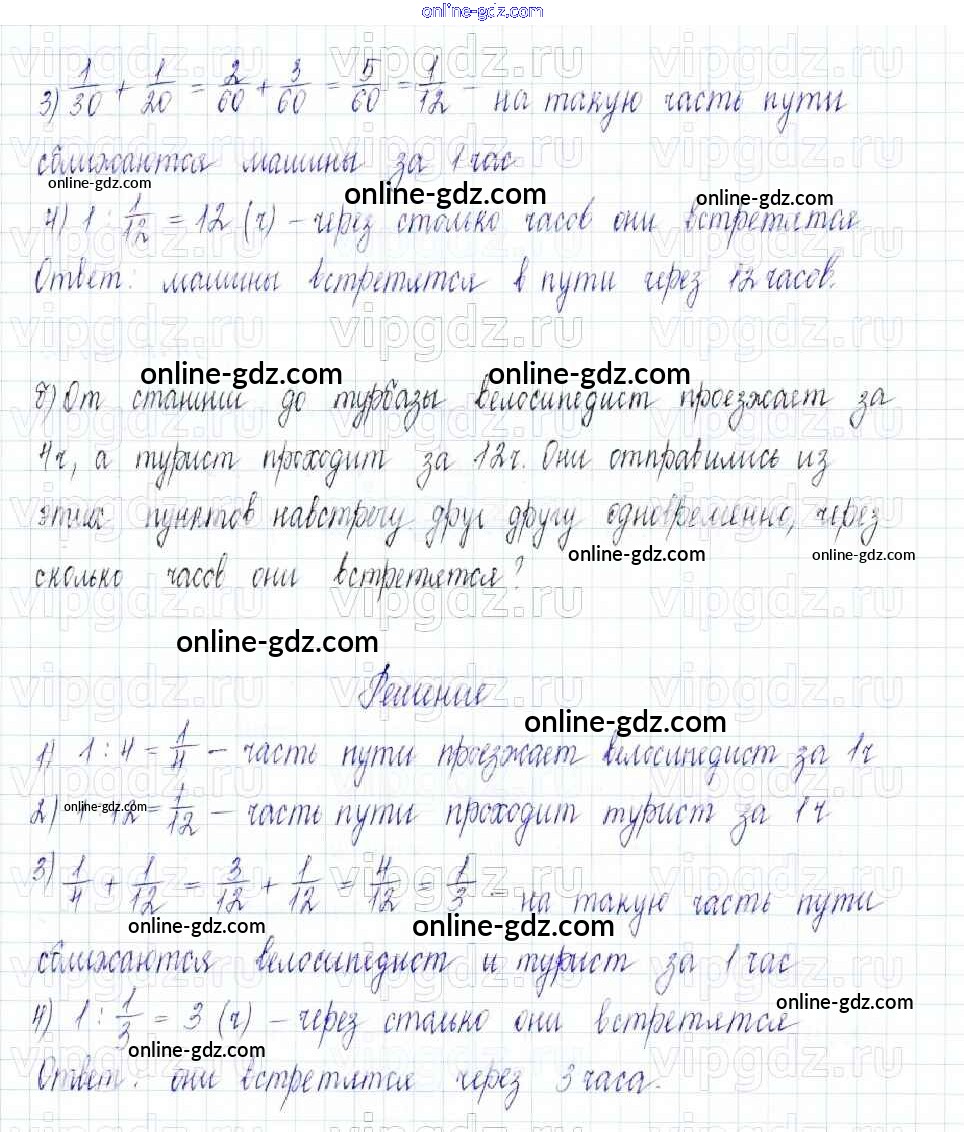 online-gdz.com
3) 1/30 + 1/20 = 2/60 + 3/60 = 5/60 = 1/12 - на такую часть пути
сближаются машины за 1 час
online-gdz.com online-gdz.com online-gdz.com
4) 1 : 1/12 = 12 (ч) - через столько часов они встретятся
Ответ: машины встретятся в пути через 12 часов.
online-gdz.com online-gdz.com
б) От станции до турбазы велосипедист проезжает за
4ч, а турист проходит за 12ч. Они отправились из
этих пунктов навстречу друг другу одновременно, через
online-gdz.com online-gdz.com
сколько часов они встретятся?
online-gdz.com
Решение
online-gdz.com
1) 1 : 4 = 1/4 - часть пути проезжает велосипедист за 1ч
online-gdz.com
2) 1 : 12 = 1/12 - часть пути проходит турист за 1ч
3) 1/4 + 1/12 = 3/12 + 1/12 = 4/12 = 1/3 - на такую часть пути
online-gdz.com online-gdz.com
сближаются велосипедист и турист за 1 час
online-gdz.com
4) 1 : 1/3 = 3 (ч) - через столько они встретятся
online-gdz.com
Ответ: они встретятся через 3 часа.
vipgdz.ru